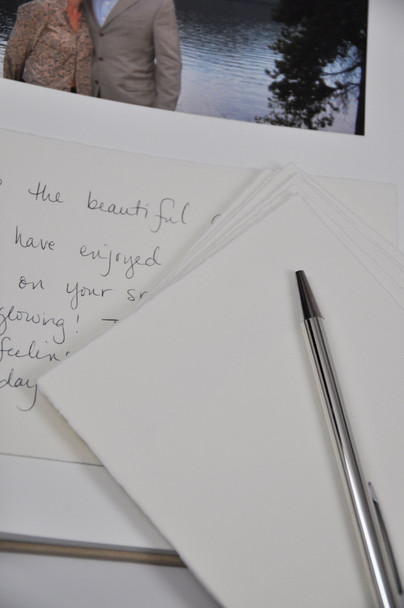 the beautiful
have enjoyed
on your
glowing!
day